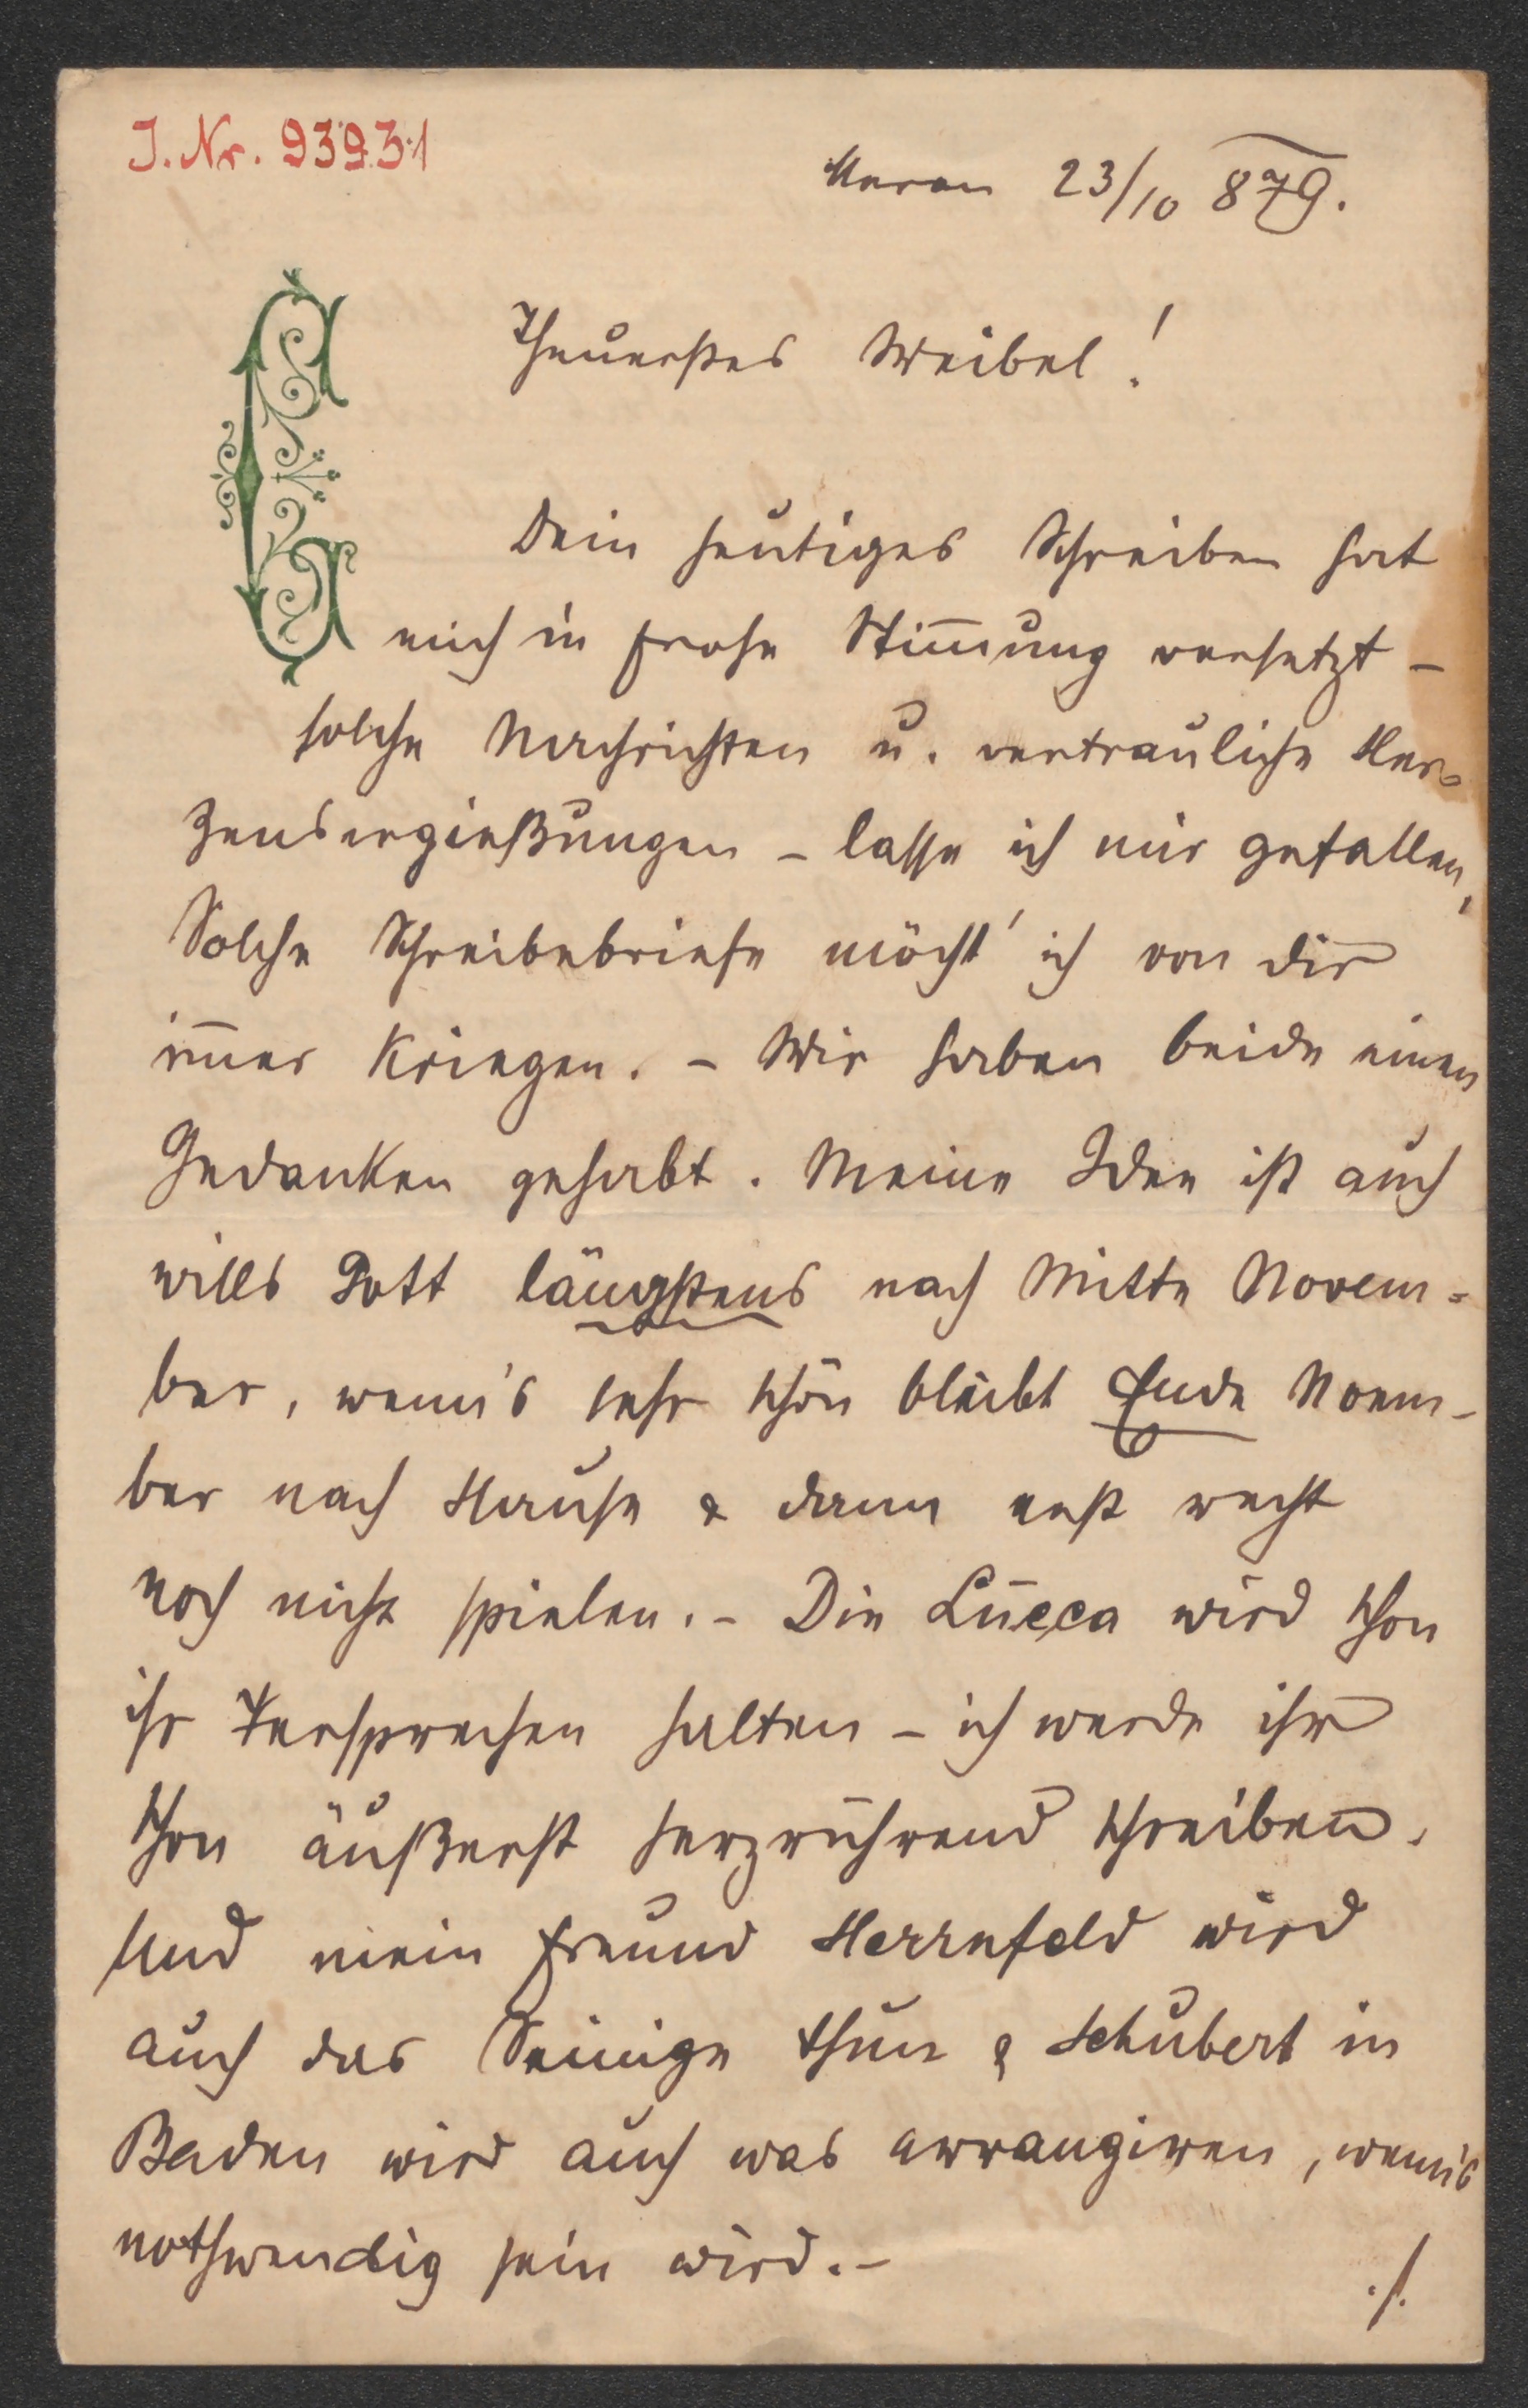 J. Nr. 93931
Meran 23/10 879.
Theuerstes Weibel!
Dein heutiges Schreiben hat
mich in frohe Stim̄ung versetzt –
solche Nachrichten u. vertrauliche Her=
zensergießungen – lasse ich mir gefallen,
Solche Schreibebriefe möcht' ich von dir
im̄er kriegen. – Wir haben beide einen
Gedanken gehabt. Meine Idee ist auch
wills Gott längstens nach Mitte Novem=
ber, wenn's sehr schön bleibt Ende Novem-
ber nach Hause & dann erst recht
noch nicht spielen. – Die Lucca wird schon
ihr Versprechen halten – ich werde ihr
schon äußerst herzrührend schreiben.
Und mein Freund Herrnfeld wird
auch das Seinige thun & Schubert in
Baden wird auch was arrangiren, wenn's
nothwendig sein wird. –
./.